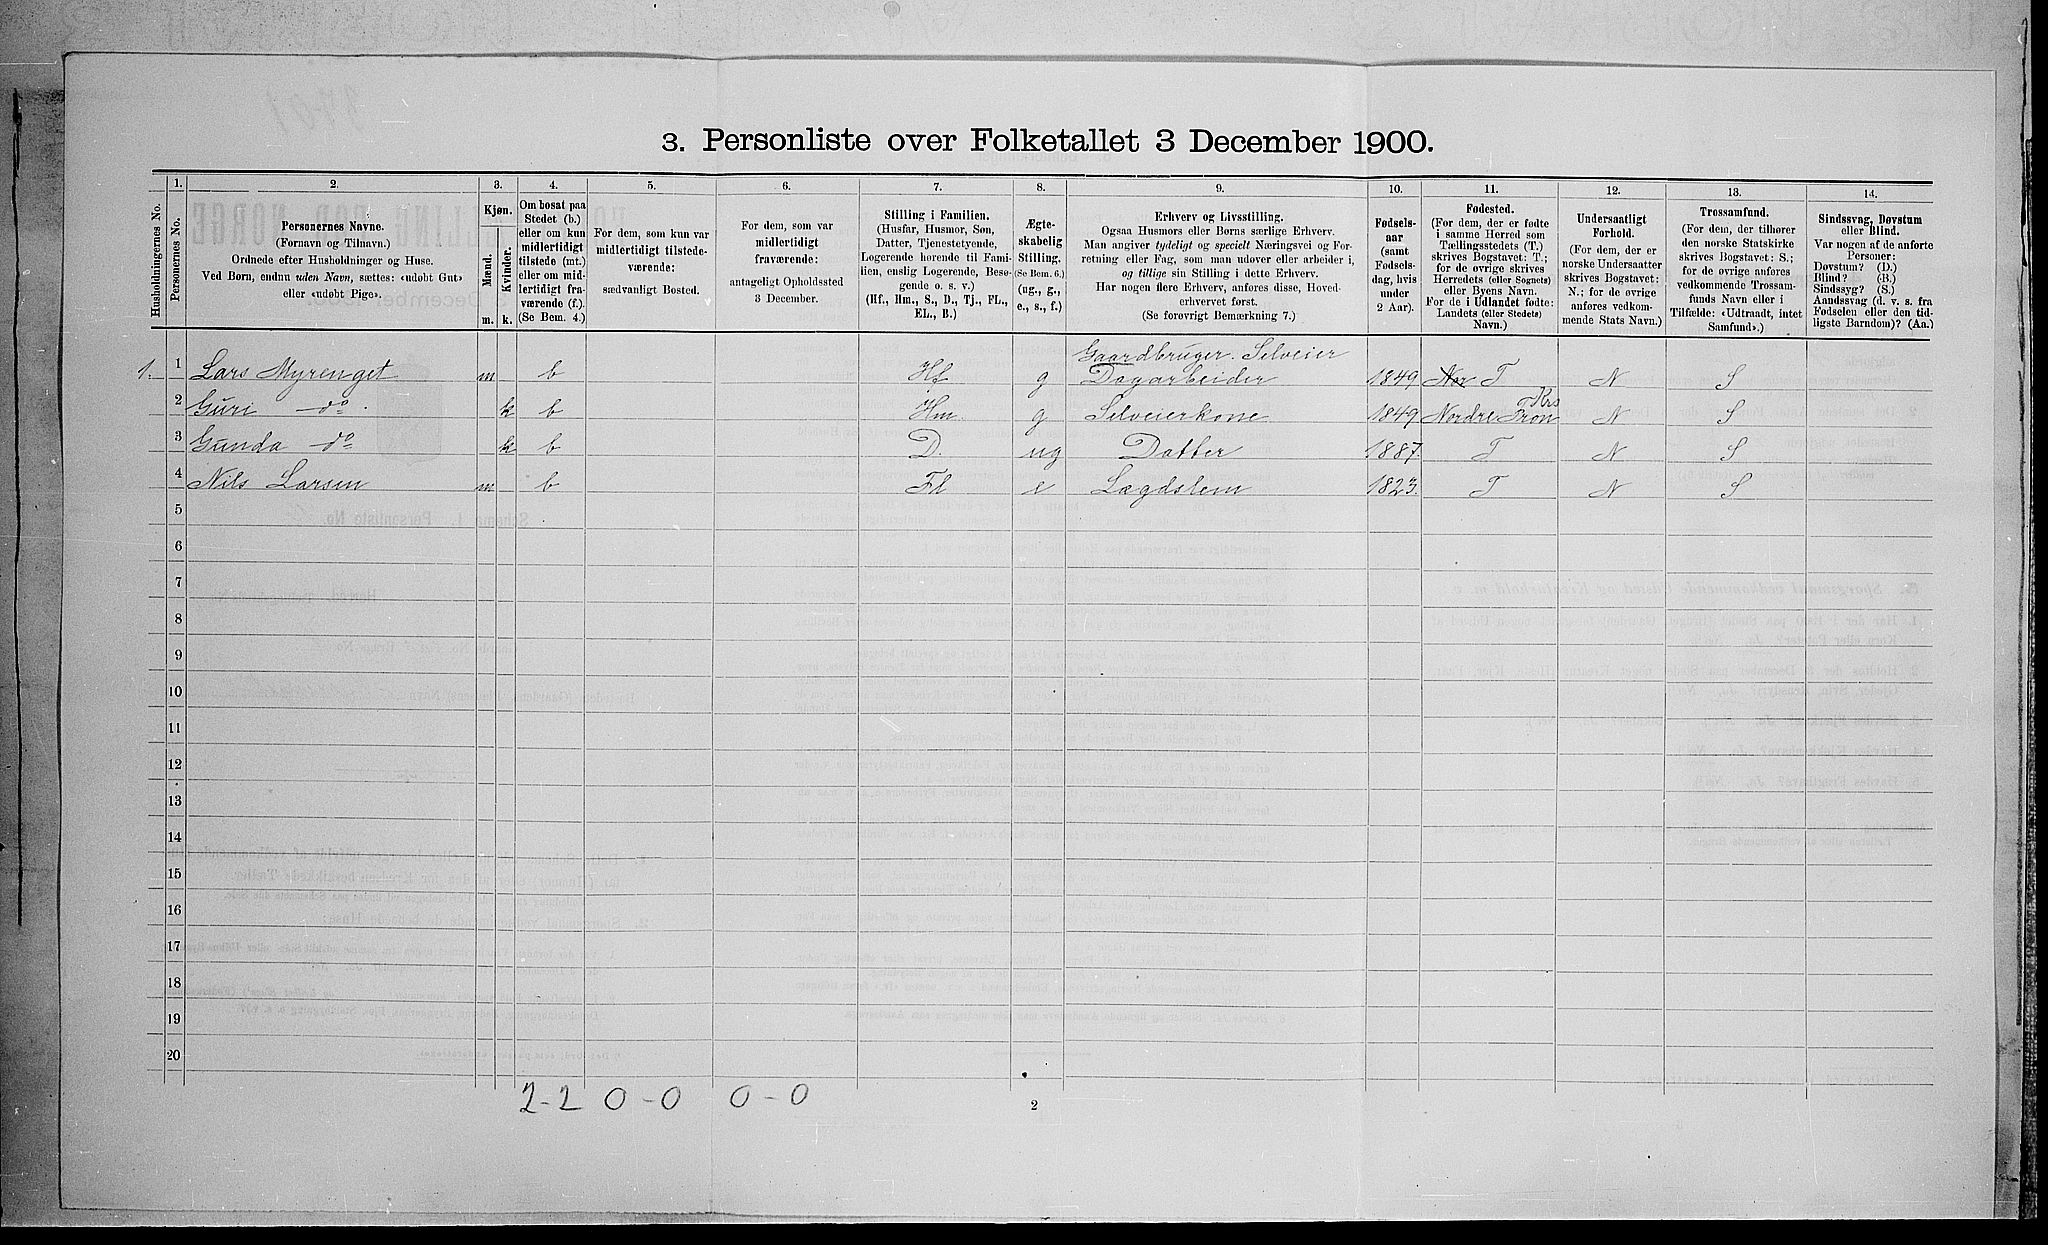 3. Personliste over Folketallet 3 December 1900.
Husholdningernes No.
1.
Personernes No.
2.
Personernes Navne.
(Fornavn og Tilnavn.)
Ordnede efter Husholdninger og Huse.
Ved Børn, endnu uden Navn, sættes: «udøbt Gut»
eller «udøbt Pige».
3.
Kjøn.
Mænd.
Kvinder.
m.
k.
4.
Om bosat paa
Stedet (b.)
eller om kun
midlertidigt
tilstede (mt.)
eller om mid-
lertidigt fra-
værende (f.).
(Se Bem. 4.)
5.
For dem, som kun var
midlertidigt tilstede-
værende:
sædvanligt Bosted.
6.
For dem, som var
midlertidigt
fraværende:
antageligt Opholdssted
3 December.
7.
Stilling i Familien.
(Husfar, Husmor, Søn,
Datter, Tjenestetyende,
Logerende hørende til Fami-
lien, enslig Logerende, Besø-
gende o. s. v.)
(Hf., Hm., S., D., Tj., FL.,
EL., B.)
8.
Ægte-
skabelig
Stilling.
(Se Bem. 6.)
(ug., g.,
e., s., f.)
9.
Erhverv og Livsstilling.
Ogsaa Husmors eller Børns særlige Erhverv.
Man angiver tydeligt og specielt Næringsvei og For-
retning eller Fag, som man udøver eller arbeider i,
og tillige sin Stilling i dette Erhverv.
Har nogen flere Erhverv, anføres disse, Hoved-
erhvervet først.
(Se forøvrigt Bemærkning 7.)
10.
Fødsels-
aar
(samt
Fødsels-
dag, hvis
under
2 Aar).
11.
Fødested.
(For dem, der er fødte
i samme Herred som
Tællingsstedets (T.)
skrives Bogstavet: T.;
for de øvrige skrives
Herredets (eller Sognets)
eller Byens Navn.
For de i Udlandet fødte:
Landets (eller Stedets)
Navn.)
12.
Undersaatligt
Forhold.
(For dem, der er
norske Undersaatter
skrives Bogstavet:
N.; for de øvrige
anføres vedkom-
mende Stats Navn.)
13.
Trossamfund.
(For dem, der tilhører
den norske Statskirke
skrives Bogstavet: S.;
for de øvrige anføres
vedkommende Trossam-
funds Navn eller i
Tilfælde: «Udtraadt, intet
Samfund».)
14.
Sindssvag, Døvstum
eller Blind.
Var nogen af de anførte
Personer:
Døvstum? (D.)
Blind? (B.)
Sindssyg? (S.)
Aandssvag (d. v. s. fra
Fødselen eller den tid-
ligste Barndom)? (Aa.)
Gaardbruger. Selveier
1. 1 Lars Myrenget m b Hf g Dagarbeider 1849 Nor T N S
Krs
2 Guri do. k b Hm. g Selveierkone 1849 Nordre Fron N S
3 Gunda do k b D. ug Datter 1887. T N S
4 Nils Larsen m b Fl e Lægdslem 1823. T N S
5
6
7
8
9
10
11
12
13
14
15
16
17
18
19
20
2-2 0-0 0-0
2